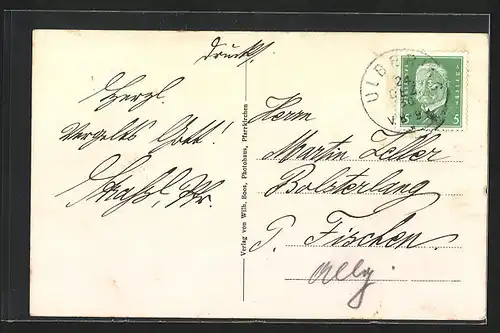 Drucks.
Herzl.
Vergelts Gott!
Verlag von Wilh. Boos, Photohaus, Pfarrkirchen
ULBER
5 5
Herrn
Martin Zeller
Bolsterlang
P. Fischen.
Allg.